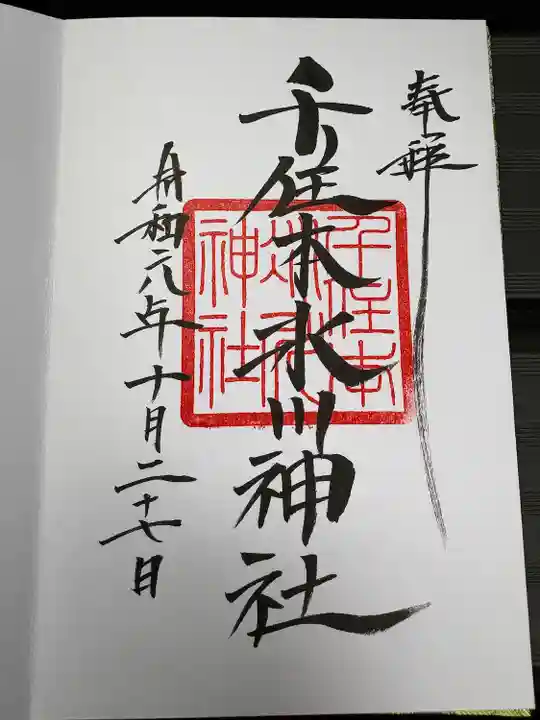 奉拝
千住本氷川神社
千住本
氷川
神社
令和六年十月二十七日